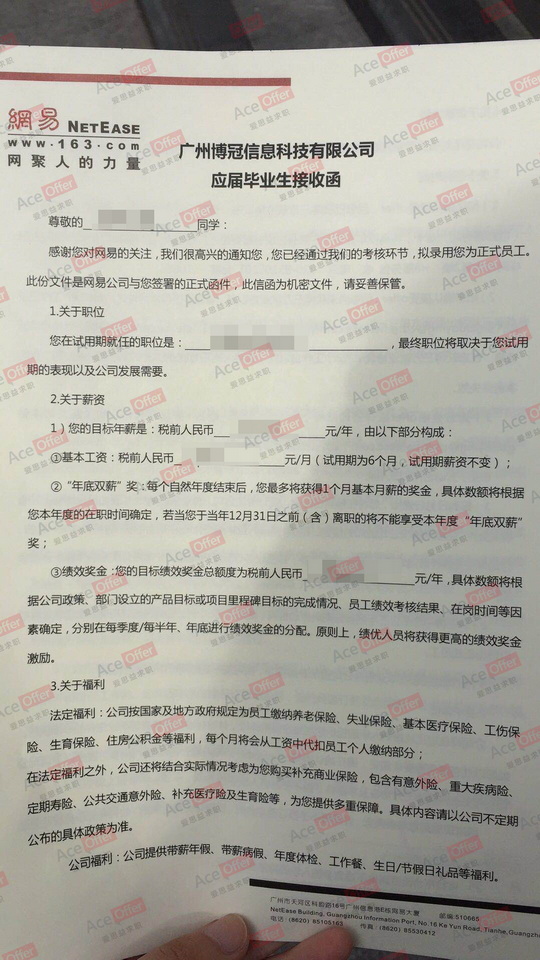 網易 NETEASE
www.163.com
网聚人的力量
广州博冠信息科技有限公司
应届毕业生接收函
尊敬的 同学：
感谢您对网易的关注，我们很高兴的通知您，您已经通过我们的考核环节，拟录用您为正式员工。
此份文件是网易公司与您签署的正式函件，此信函为机密文件，请妥善保管。
1.关于职位
您在试用期就任的职位是： ，最终职位将取决于您试用
期的表现以及公司发展需要。
2.关于薪资
1）您的目标年薪是：税前人民币 元/年，由以下部分构成：
①基本工资：税前人民币 元/月（试用期为6个月，试用期薪资不变）；
②“年底双薪”奖：每个自然年度结束后，您最多将获得1个月基本月薪的奖金，具体数额将根据
您本年度的在职时间确定，若当您于当年12月31日之前（含）离职的将不能享受本年度“年底双薪”
奖；
③绩效奖金：您的目标绩效奖金总额度为税前人民币 元/年，具体数额将根
据公司政策、部门设立的产品目标或项目里程碑目标的完成情况、员工绩效考核结果、在岗时间等因
素确定，分别在每季度/每半年、年底进行绩效奖金的分配。原则上，绩优人员将获得更高的绩效奖金
激励。
3.关于福利
法定福利：公司按国家及地方政府规定为员工缴纳养老保险、失业保险、基本医疗保险、工伤保
险、生育保险、住房公积金等福利，每个月将会从工资中代扣员工个人缴纳部分；
在法定福利之外，公司还将结合实际情况考虑为您购买补充商业保险，包含有意外险、重大疾病险、
定期寿险、公共交通意外险、补充医疗险及生育险等，为您提供多重保障。具体内容请以公司不定期
公布的具体政策为准。
公司福利：公司提供带薪年假、带薪病假、年度体检、工作餐、生日/节假日礼品等福利。
广州市天河区科韵路16号广州信息港E栋网易大厦 邮编:510665
NetEase Building, Guangzhou Information Port, No.16 Ke Yun Road, Tianhe,Guangzhou
电话:(8620) 85105163 传真:(8620) 85530412
Ace Offer
爱思益求职